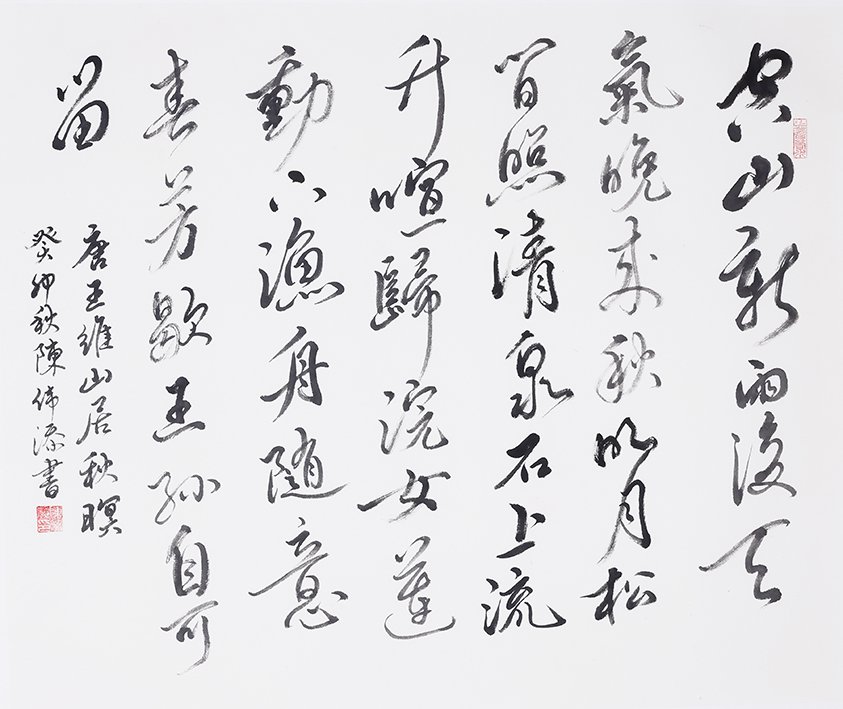 空山新雨後天
氣晚來秋明月松
間照清泉石上流
竹喧歸浣女蓮
動下漁舟隨意
春芳歇王孫自可
留
唐王維山居秋暝
癸卯秋陳偉添書